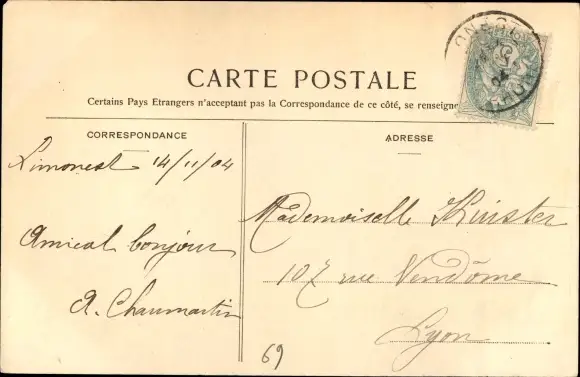 CARTE POSTALE
Certains Pays Etrangers n'acceptant pas la Correspondance de ce côté, se renseigne
CORRESPONDANCE
Limonest 14/11/04
Amical bonjour
A. Chaumartin
ADRESSE
Mademoiselle
107 rue Vendôme
Lyon
69